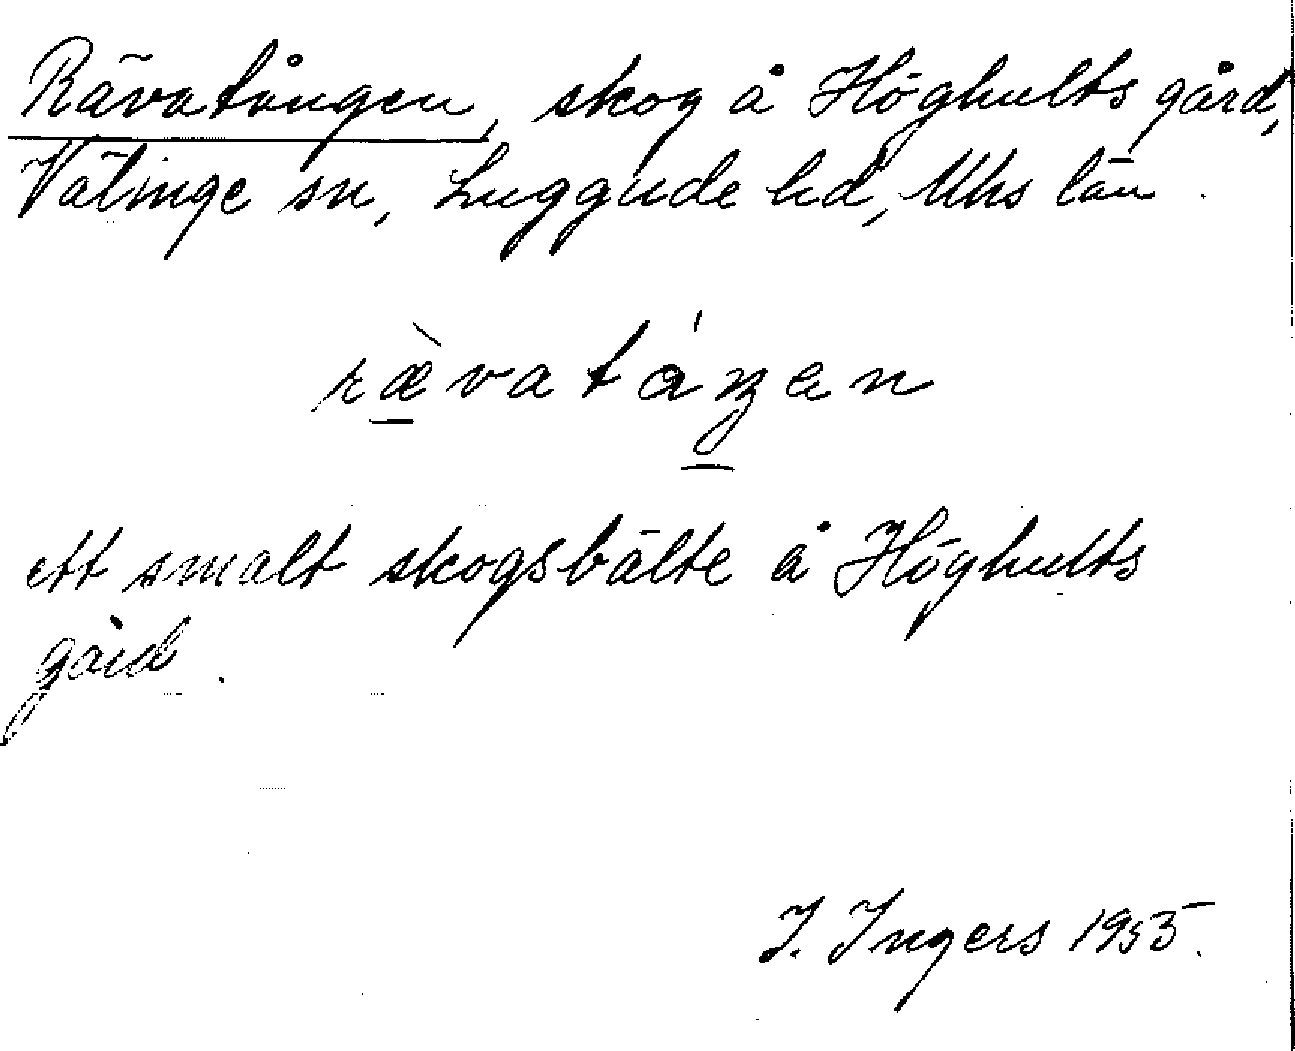 Rävatången, skog å Höghults gård,
Välinge sn, Luggude hd, Mhs län.
rævatåŋen
ett smalt skogsbälte å Höghults
gård.
I. Ingers 1955.